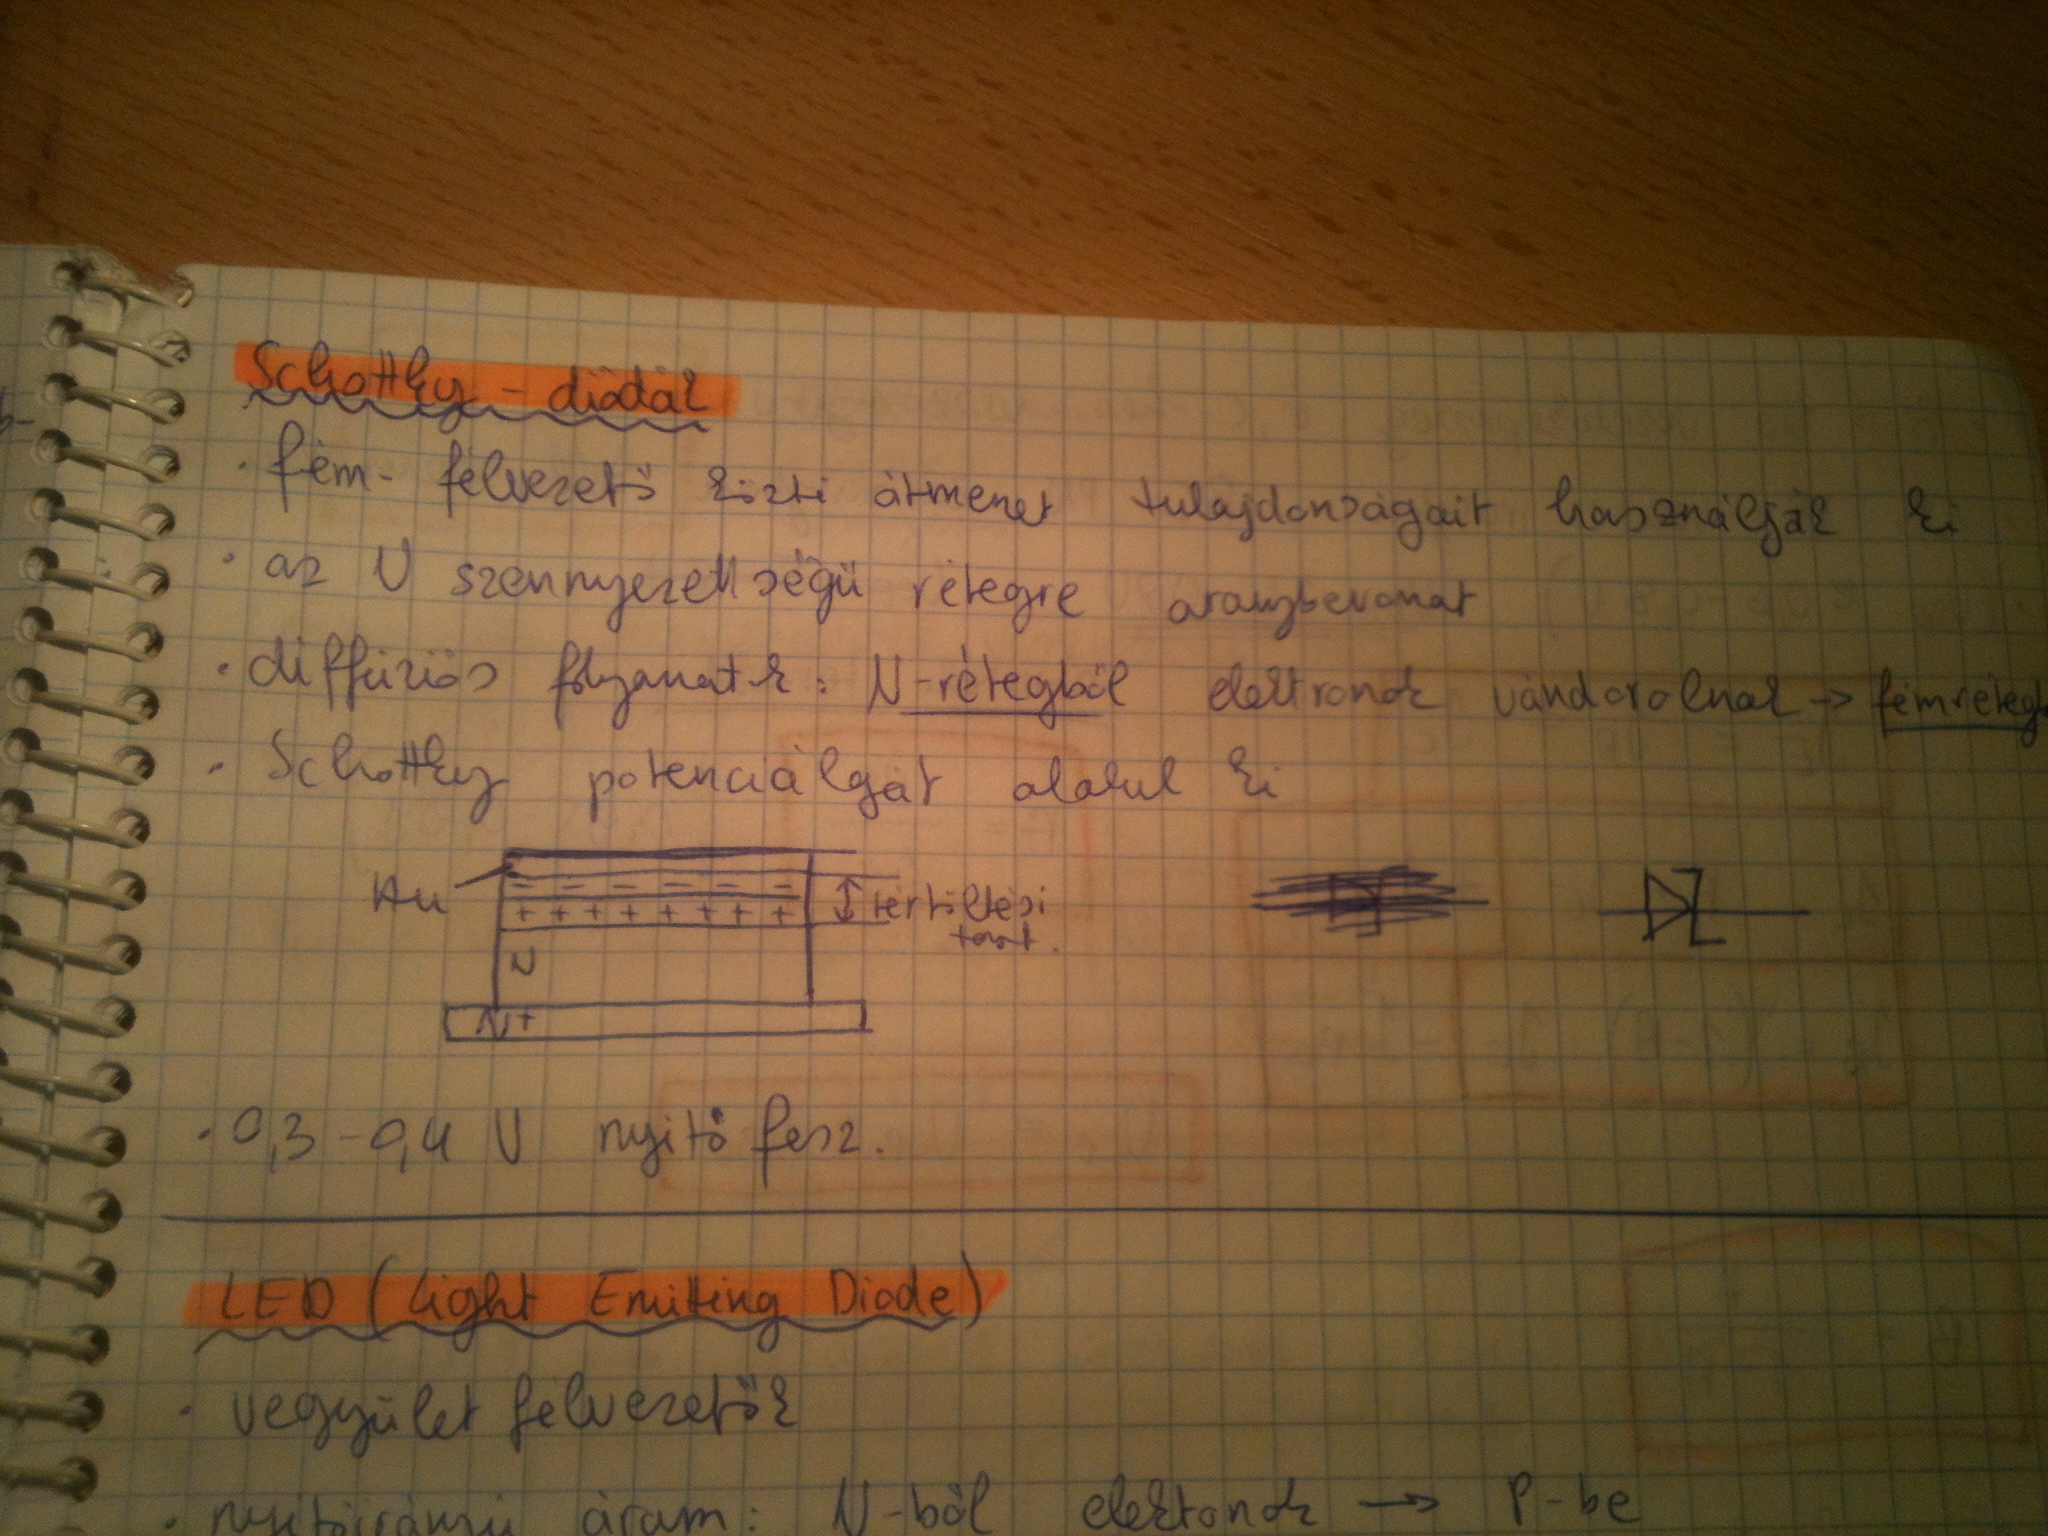 Schottky-diódák
· fém-félvezető közti átmenet tulajdonságait használják ki
· az N szennyezettségű rétegre aranybevonat
· diffúziós folyamatok: N-rétegből elektronok vándorolnak → fémréteg
· Schottky potenciálgát alakul ki
Au
− − − − − − − −
+ + + + + + + +
N
N+
↕ kiürítési tart.
· 0,3-0,4 V nyitó fesz.
LED (Light Emiting Diode)
· vegyület félvezetők
· nyitóirányú áram: N-ből elektonok → P-be